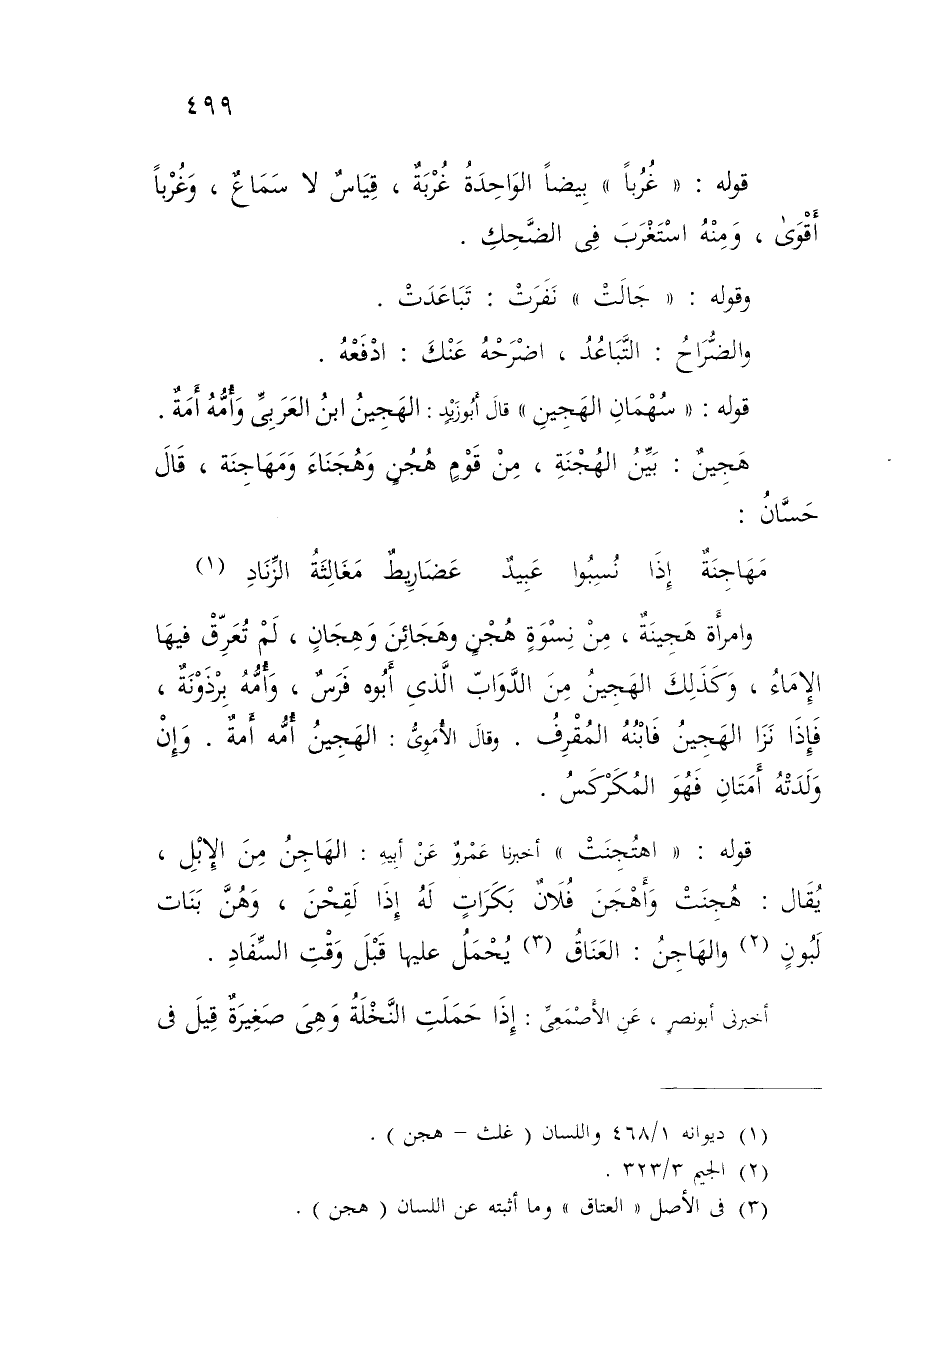 ٤٩٩
قوله : « غُرُباً » بِيضاً الوَاحِدَةُ غُرْبَةٌ ، قِيَاسٌ لا سَمَاعٌ ، وَغُرْباً
أَقْوَىٰ ، وَمِنْهُ اسْتَغْرَبَ فِى الضَّحِكِ .
وقوله : « جَالَتْ » نَفَرَتْ : تَبَاعَدَتْ .
والضُّرَاحُ : التَّبَاعُدُ ، اضْرَحْهُ عَنْكَ : ادْفَعْهُ .
قوله : « سُهْمَانِ الهَجِينِ » قالَ أَبُوزَيْدٍ : الهَجِينُ ابنُ العَرَبِىِّ وَأُمُّهُ أَمَةٌ .
هَجِينٌ : بَيِّنُ الهُجْنَةِ ، مِنْ قَوْمٍ هُجُنٍ وَهُجَنَاءَ وَمَهَاجِنَة ، قَالَ
حَسَّانُ :
مَهَاجِنَةٌ إِذَا نُسِبُوا عَبِيدٌ عَضَارِيطٌ مَغَالِثَةُ الزِّنَادِ (١)
وامرأَة هَجِينَةٌ ، مِنْ نِسْوَةٍ هُجْنٍ وهَجَائِنَ وَهِجَانٍ ، لَمْ تُعَرِّقْ فيهَا
الإِمَاءُ ، وَكَذَلِكَ الهَجِينُ مِنَ الدَّوَابّ الَّذي أَبُوه فَرَسٌ ، وَأُمُّهُ بِرْذَوْنَةٌ ،
فَإِذَا نَزَا الهَجِينُ فَابْنُهُ المُقْرِفُ . وقالَ الأُمَوِىُّ : الهَجِينُ أُمُّه أَمةٌ . وَإِنْ
وَلَدَتْهُ أَمَتَانِ فَهُوَ المُكَرْكَسُ .
قوله : « اهتُجِنَتْ » أخبرنا عَمْروٌ عَنْ أبيهِ : الهَاجِنُ مِنَ الإِبْلِ ،
يُقَال : هُجِنَتْ وَأَهْجَنَ فُلَانٌ بَكَرَاتٍ لَهُ إِذَا لَقِحْنَ ، وَهُنَّ بَنَات
لَبُونٍ (٢) والهَاجِنُ : العَنَاقُ (٣) يُحْمَلُ عليها قَبْلَ وَقْتِ السِّفَادِ .
أخبرنى أبونصرٍ ، عَنِ الأَصْمَعِىِّ : إِذَا حَمَلَتِ النَّخْلَةُ وَهِىَ صَغِيرَةٌ قِيلَ فى
(١) ديوانه ٤٦٨/١ واللسان ( غلث – هجن ) .
(٢) الجيم ٣٢٣/٣ .
(٣) فى الأصل « العتاق » وما أثبته عن اللسان ( هجن ) .